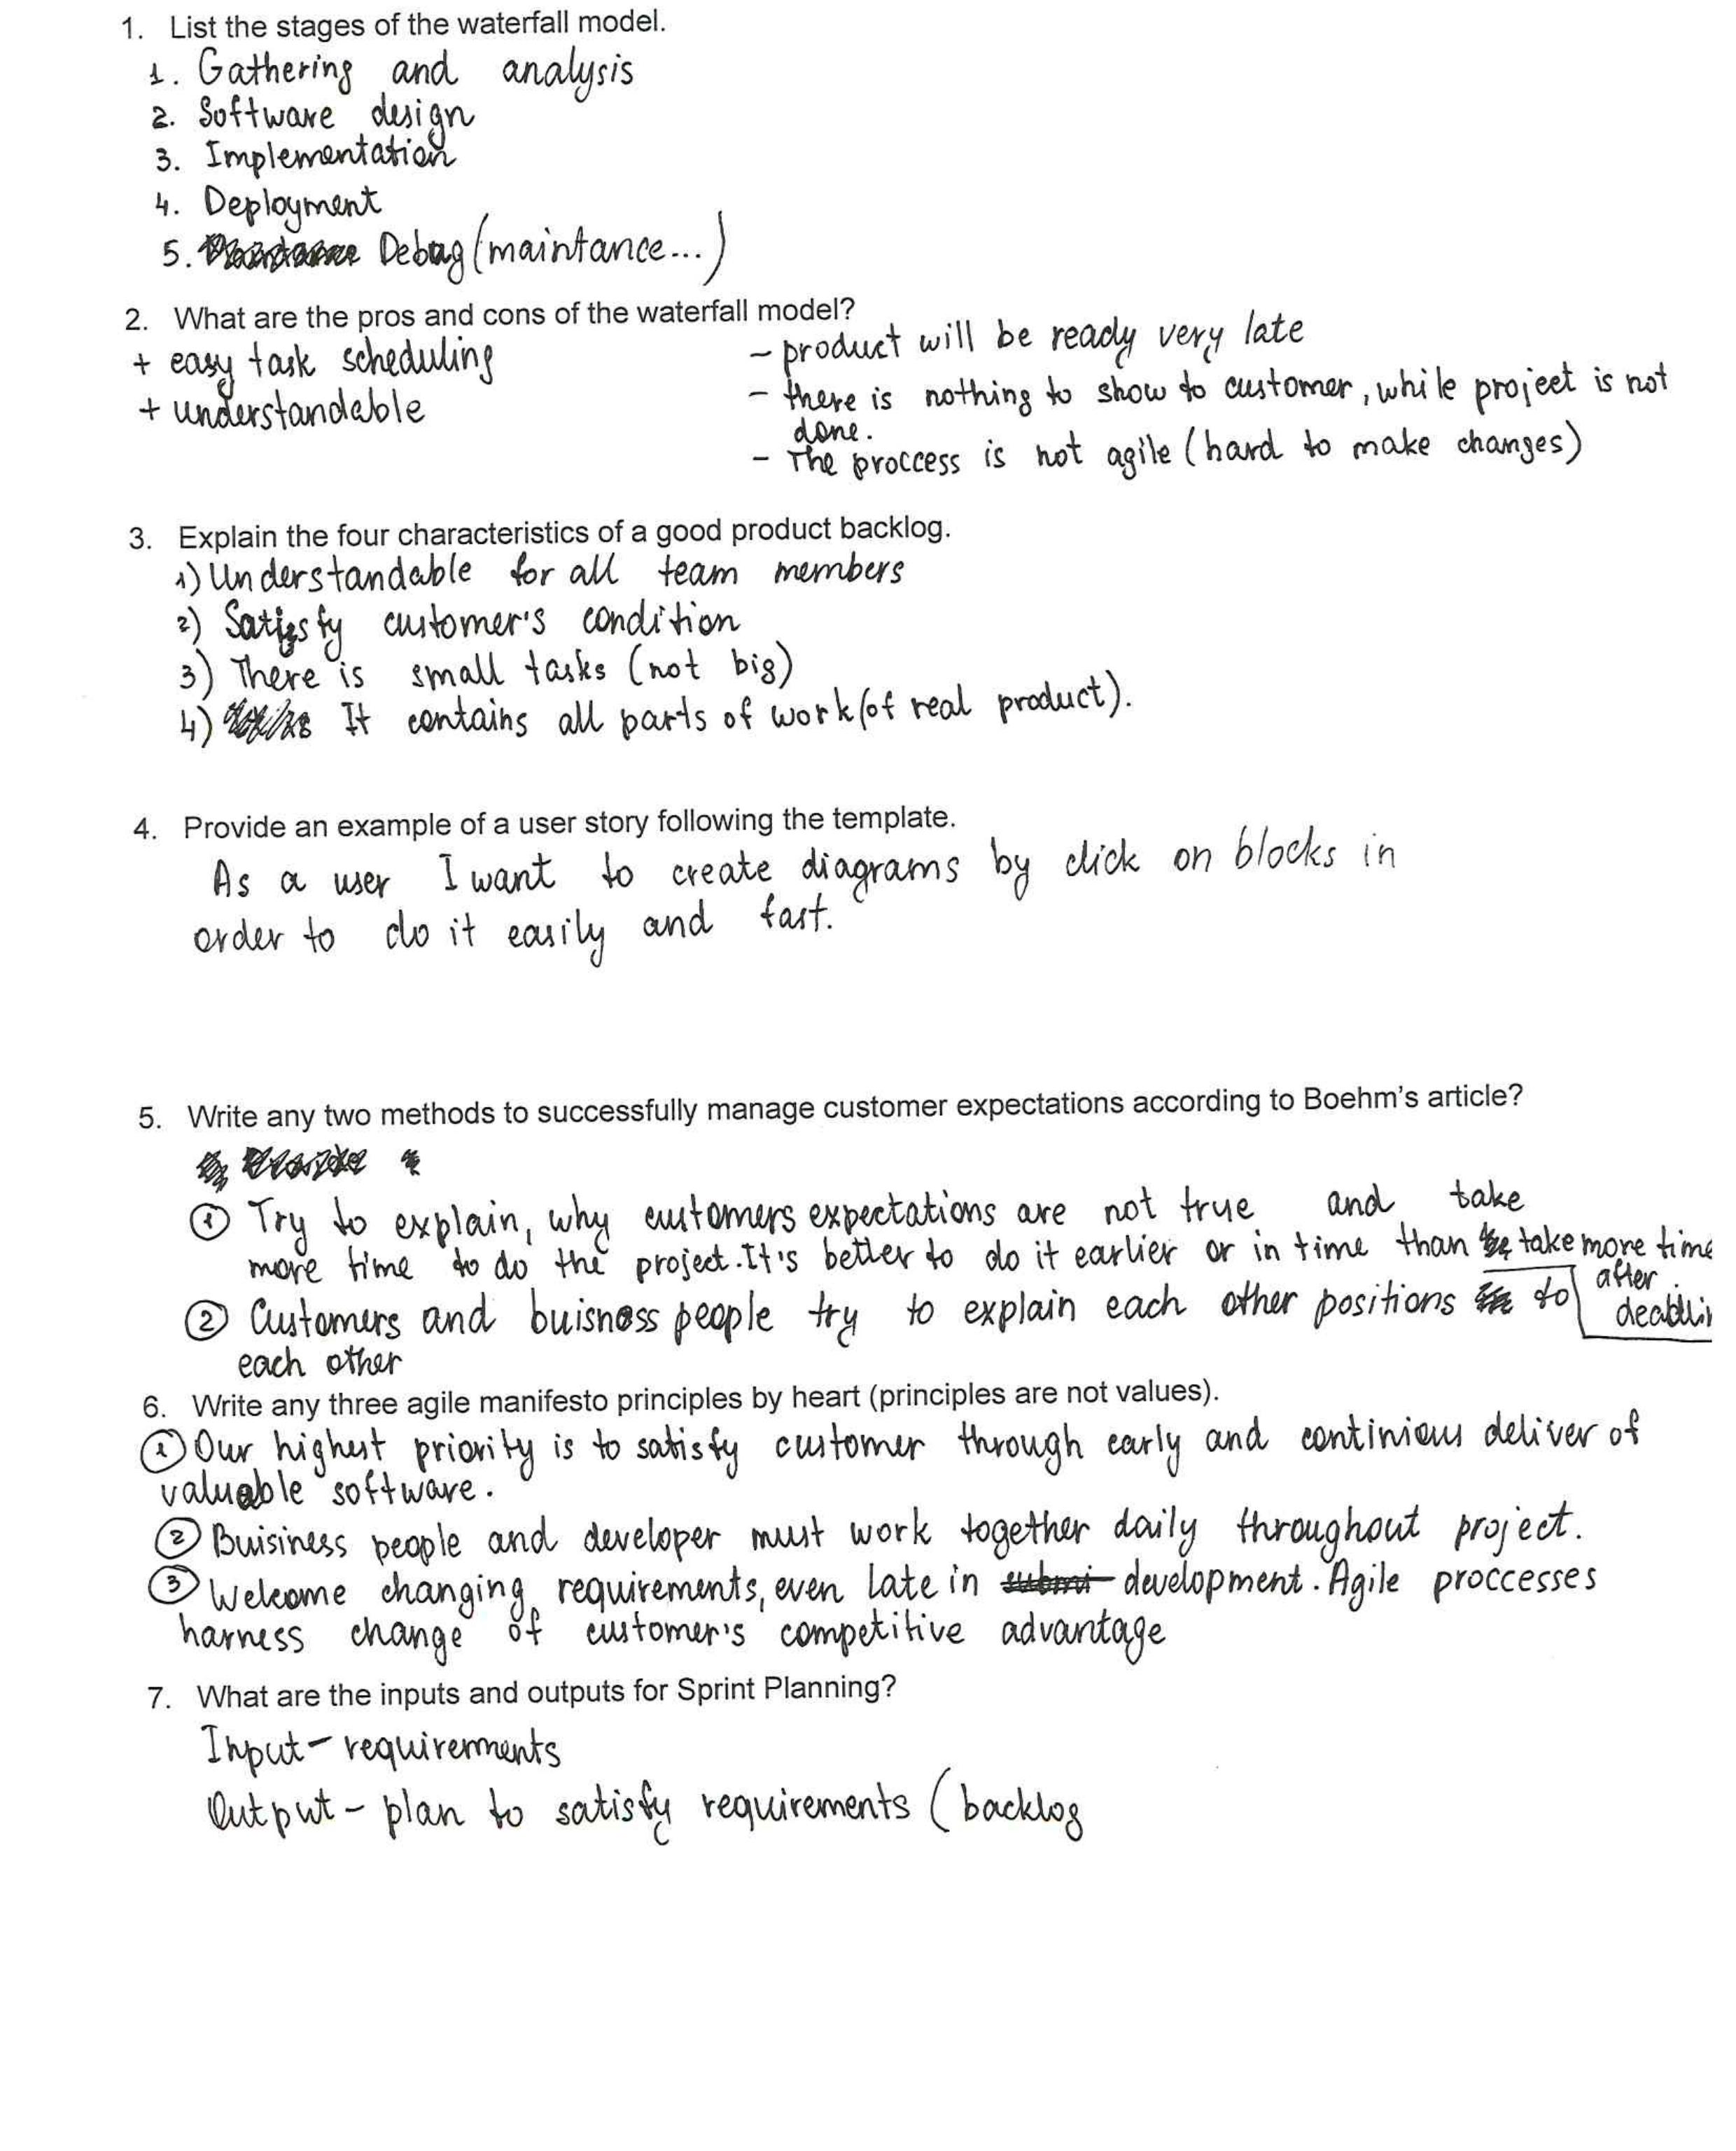 1. List the stages of the waterfall model.
1. Gathering and analysis
2. Software design
3. Implementation
4. Deployment
5. Debug (maintance...)
2. What are the pros and cons of the waterfall model?
+ easy task scheduling
+ understandable
- product will be ready very late
- there is nothing to show to customer, while project is not
done.
- The proccess is not agile (hard to make changes)
3. Explain the four characteristics of a good product backlog.
1) Understandable for all team members
2) Satisfy customer's condition
3) There is small tasks (not big)
4) It contains all parts of work (of real product).
4. Provide an example of a user story following the template.
As a user I want to create diagrams by click on blocks in
order to do it easily and fast.
5. Write any two methods to successfully manage customer expectations according to Boehm's article?
① Try to explain, why customers expectations are not true and take
more time to do the project. It's better to do it earlier or in time than take more time
after
deadlin
② Customers and buisness people try to explain each other positions to
each other
6. Write any three agile manifesto principles by heart (principles are not values).
① Our highest priority is to satisfy customer through early and continious deliver of
valuable software.
② Buisiness people and developer must work together daily throughout project.
③ Welcome changing requirements, even late in submi development. Agile proccesses
harness change of customer's competitive advantage
7. What are the inputs and outputs for Sprint Planning?
Input - requirements
Output - plan to satisfy requirements (backlog